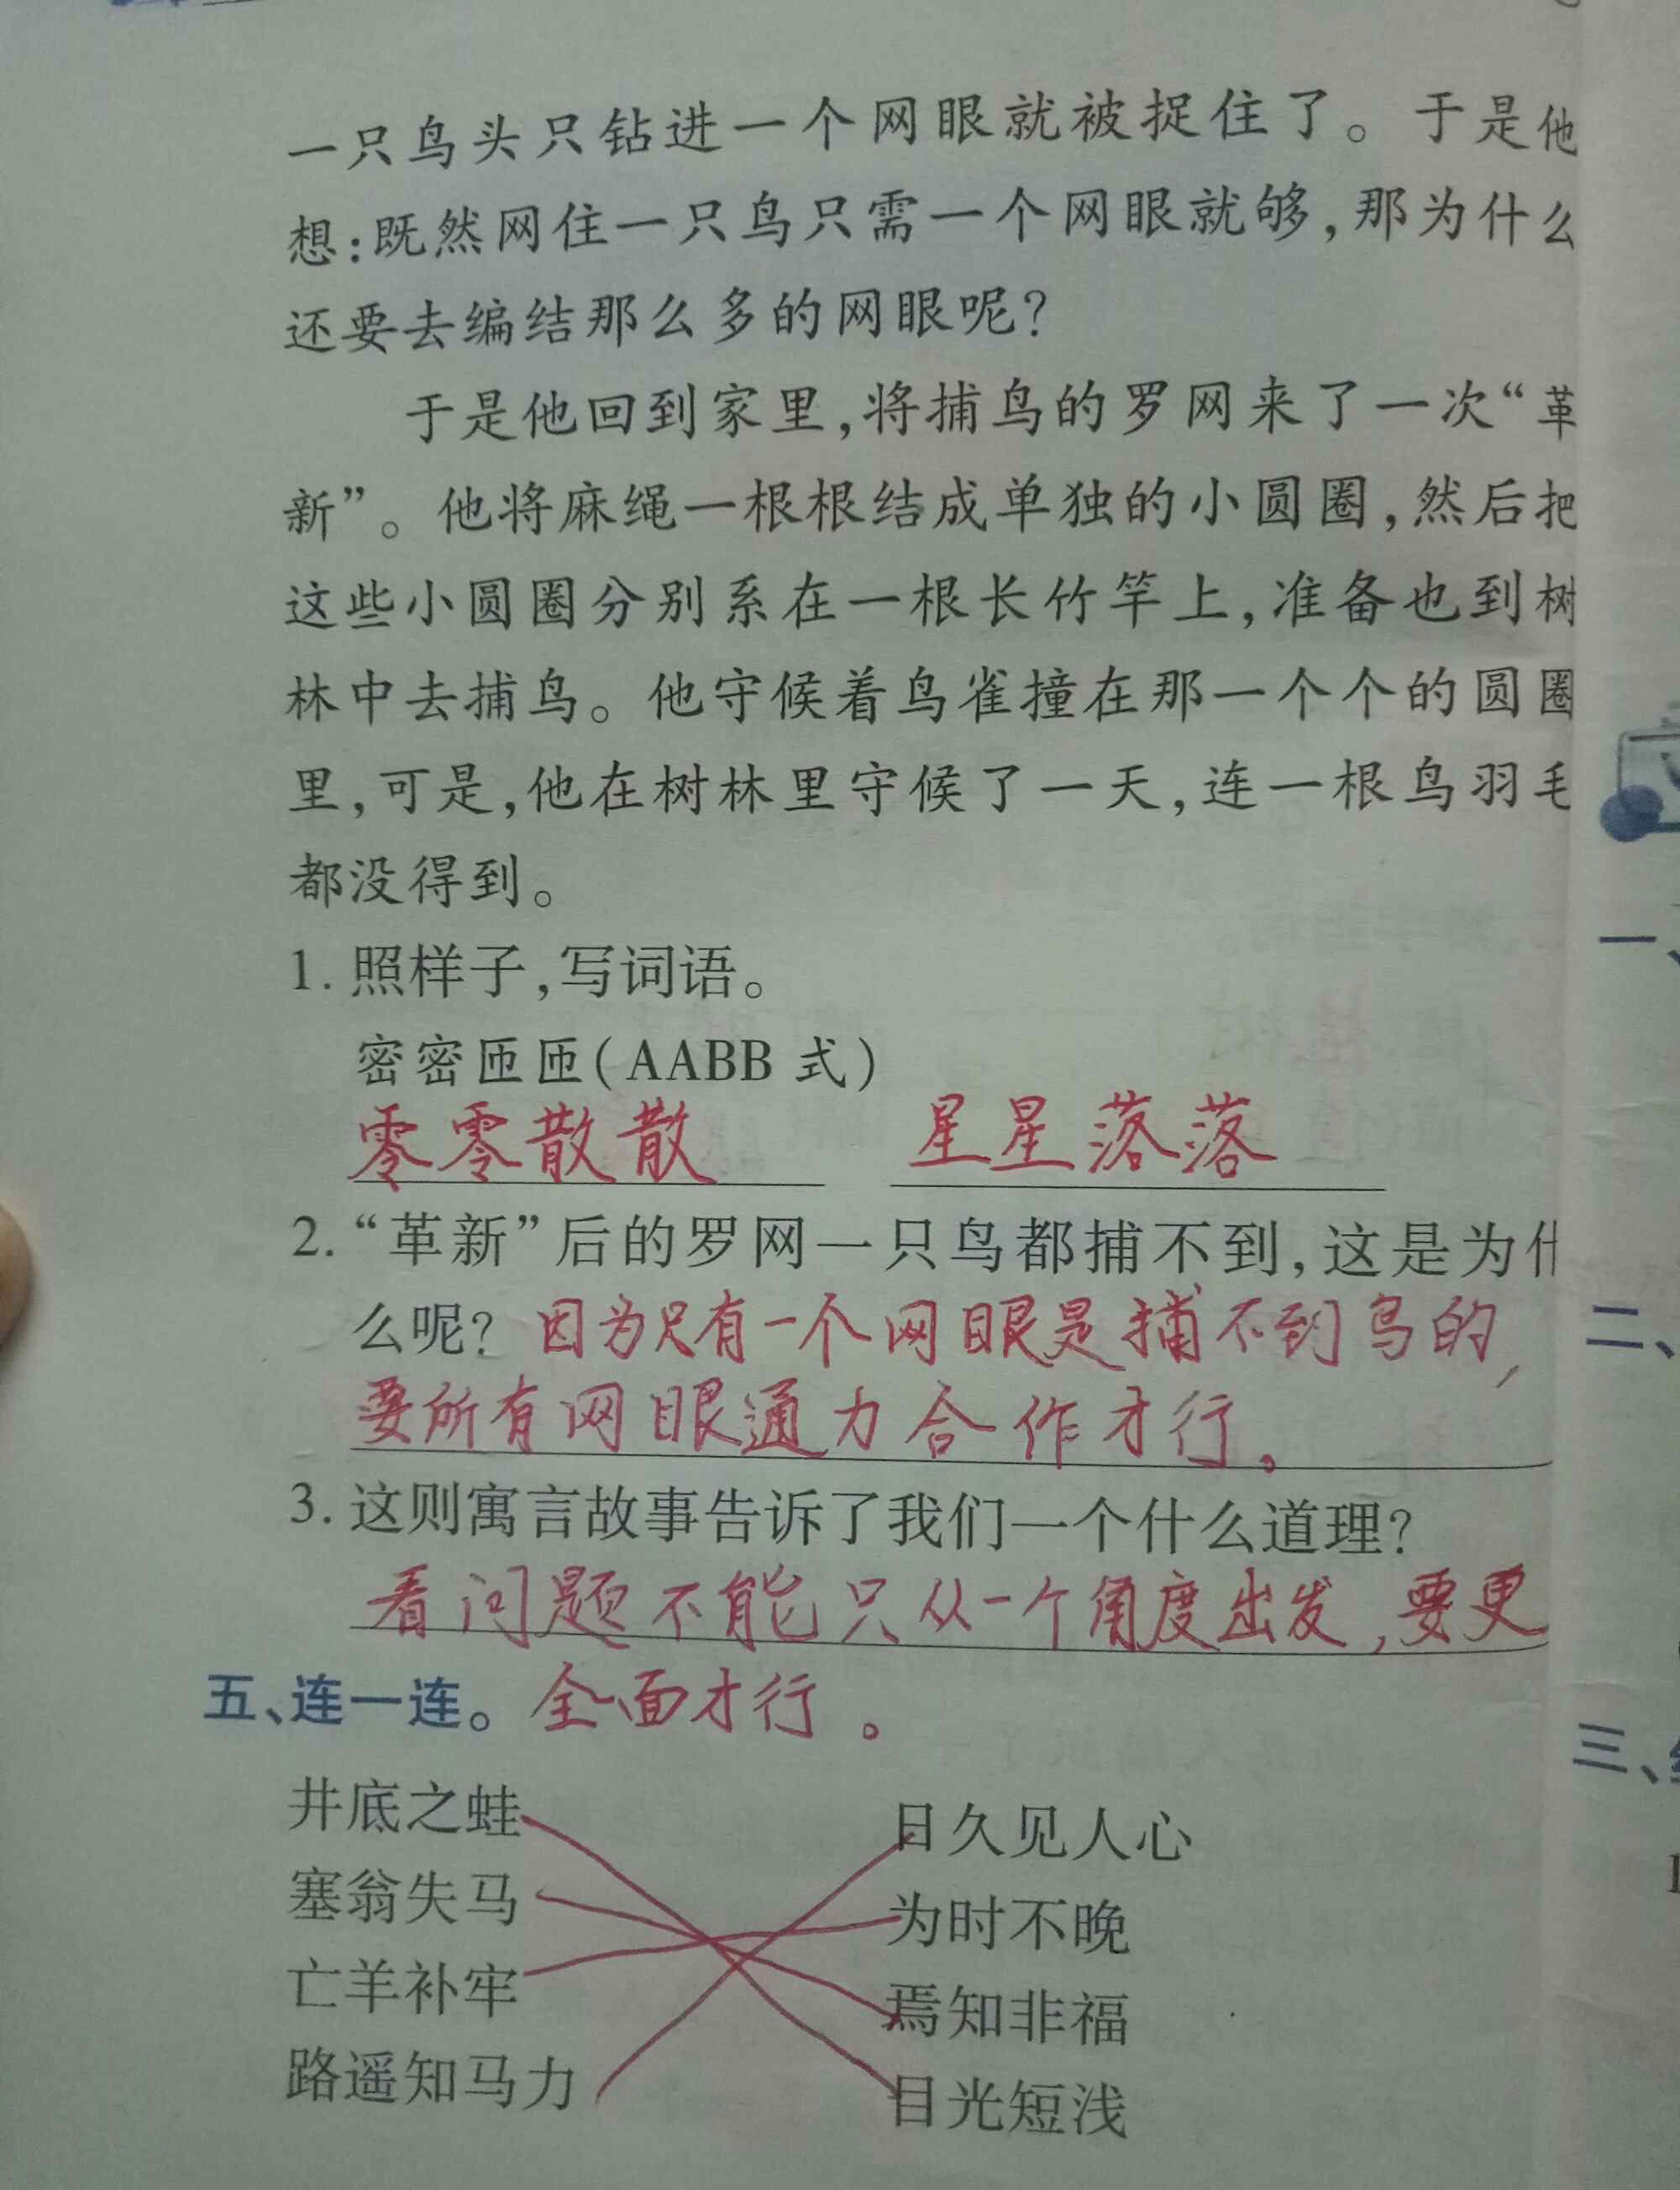 一只鸟头只钻进一个网眼就被捉住了。于是他
想:既然网住一只鸟只需一个网眼就够,那为什么
还要去编结那么多的网眼呢?
于是他回到家里,将捕鸟的罗网来了一次“革
新”。他将麻绳一根根结成单独的小圆圈,然后把
这些小圆圈分别系在一根长竹竿上,准备也到树
林中去捕鸟。他守候着鸟雀撞在那一个个的圆圈
里,可是,他在树林里守候了一天,连一根鸟羽毛
都没得到。
1. 照样子,写词语。
密密匝匝(AABB 式)
零零散散 星星落落
2. “革新”后的罗网一只鸟都捕不到,这是为什
么呢? 因为只有一个网眼是捕不到鸟的,
要所有网眼通力合作才行。
3. 这则寓言故事告诉了我们一个什么道理?
看问题不能只从一个角度出发,要更
五、连一连。全面才行。
井底之蛙 日久见人心
塞翁失马 为时不晚
亡羊补牢 焉知非福
路遥知马力 目光短浅
一、
二、
三、